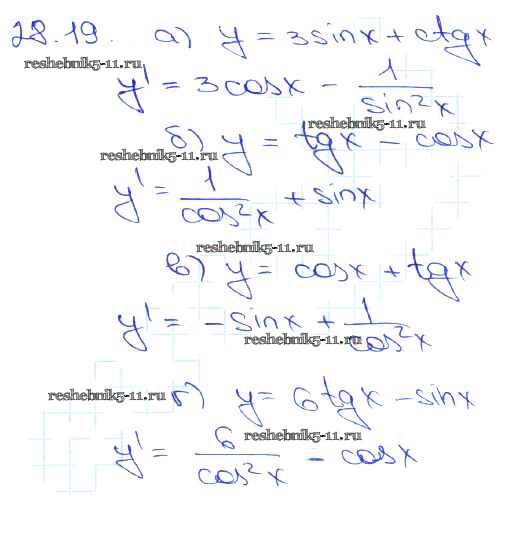 28.19. а) y = 3sinx + ctgx
reshebnik5-11.ru
y' = 3cosx - 1/sin²x
reshebnik5-11.ru
б) y = tgx - cosx
reshebnik5-11.ru
y' = 1/cos²x + sinx
reshebnik5-11.ru
в) y = cosx + tgx
y' = -sinx + 1/cos²x
reshebnik5-11.ru
reshebnik5-11.ru г) y = 6tgx - sinx
reshebnik5-11.ru
y' = 6/cos²x - cosx